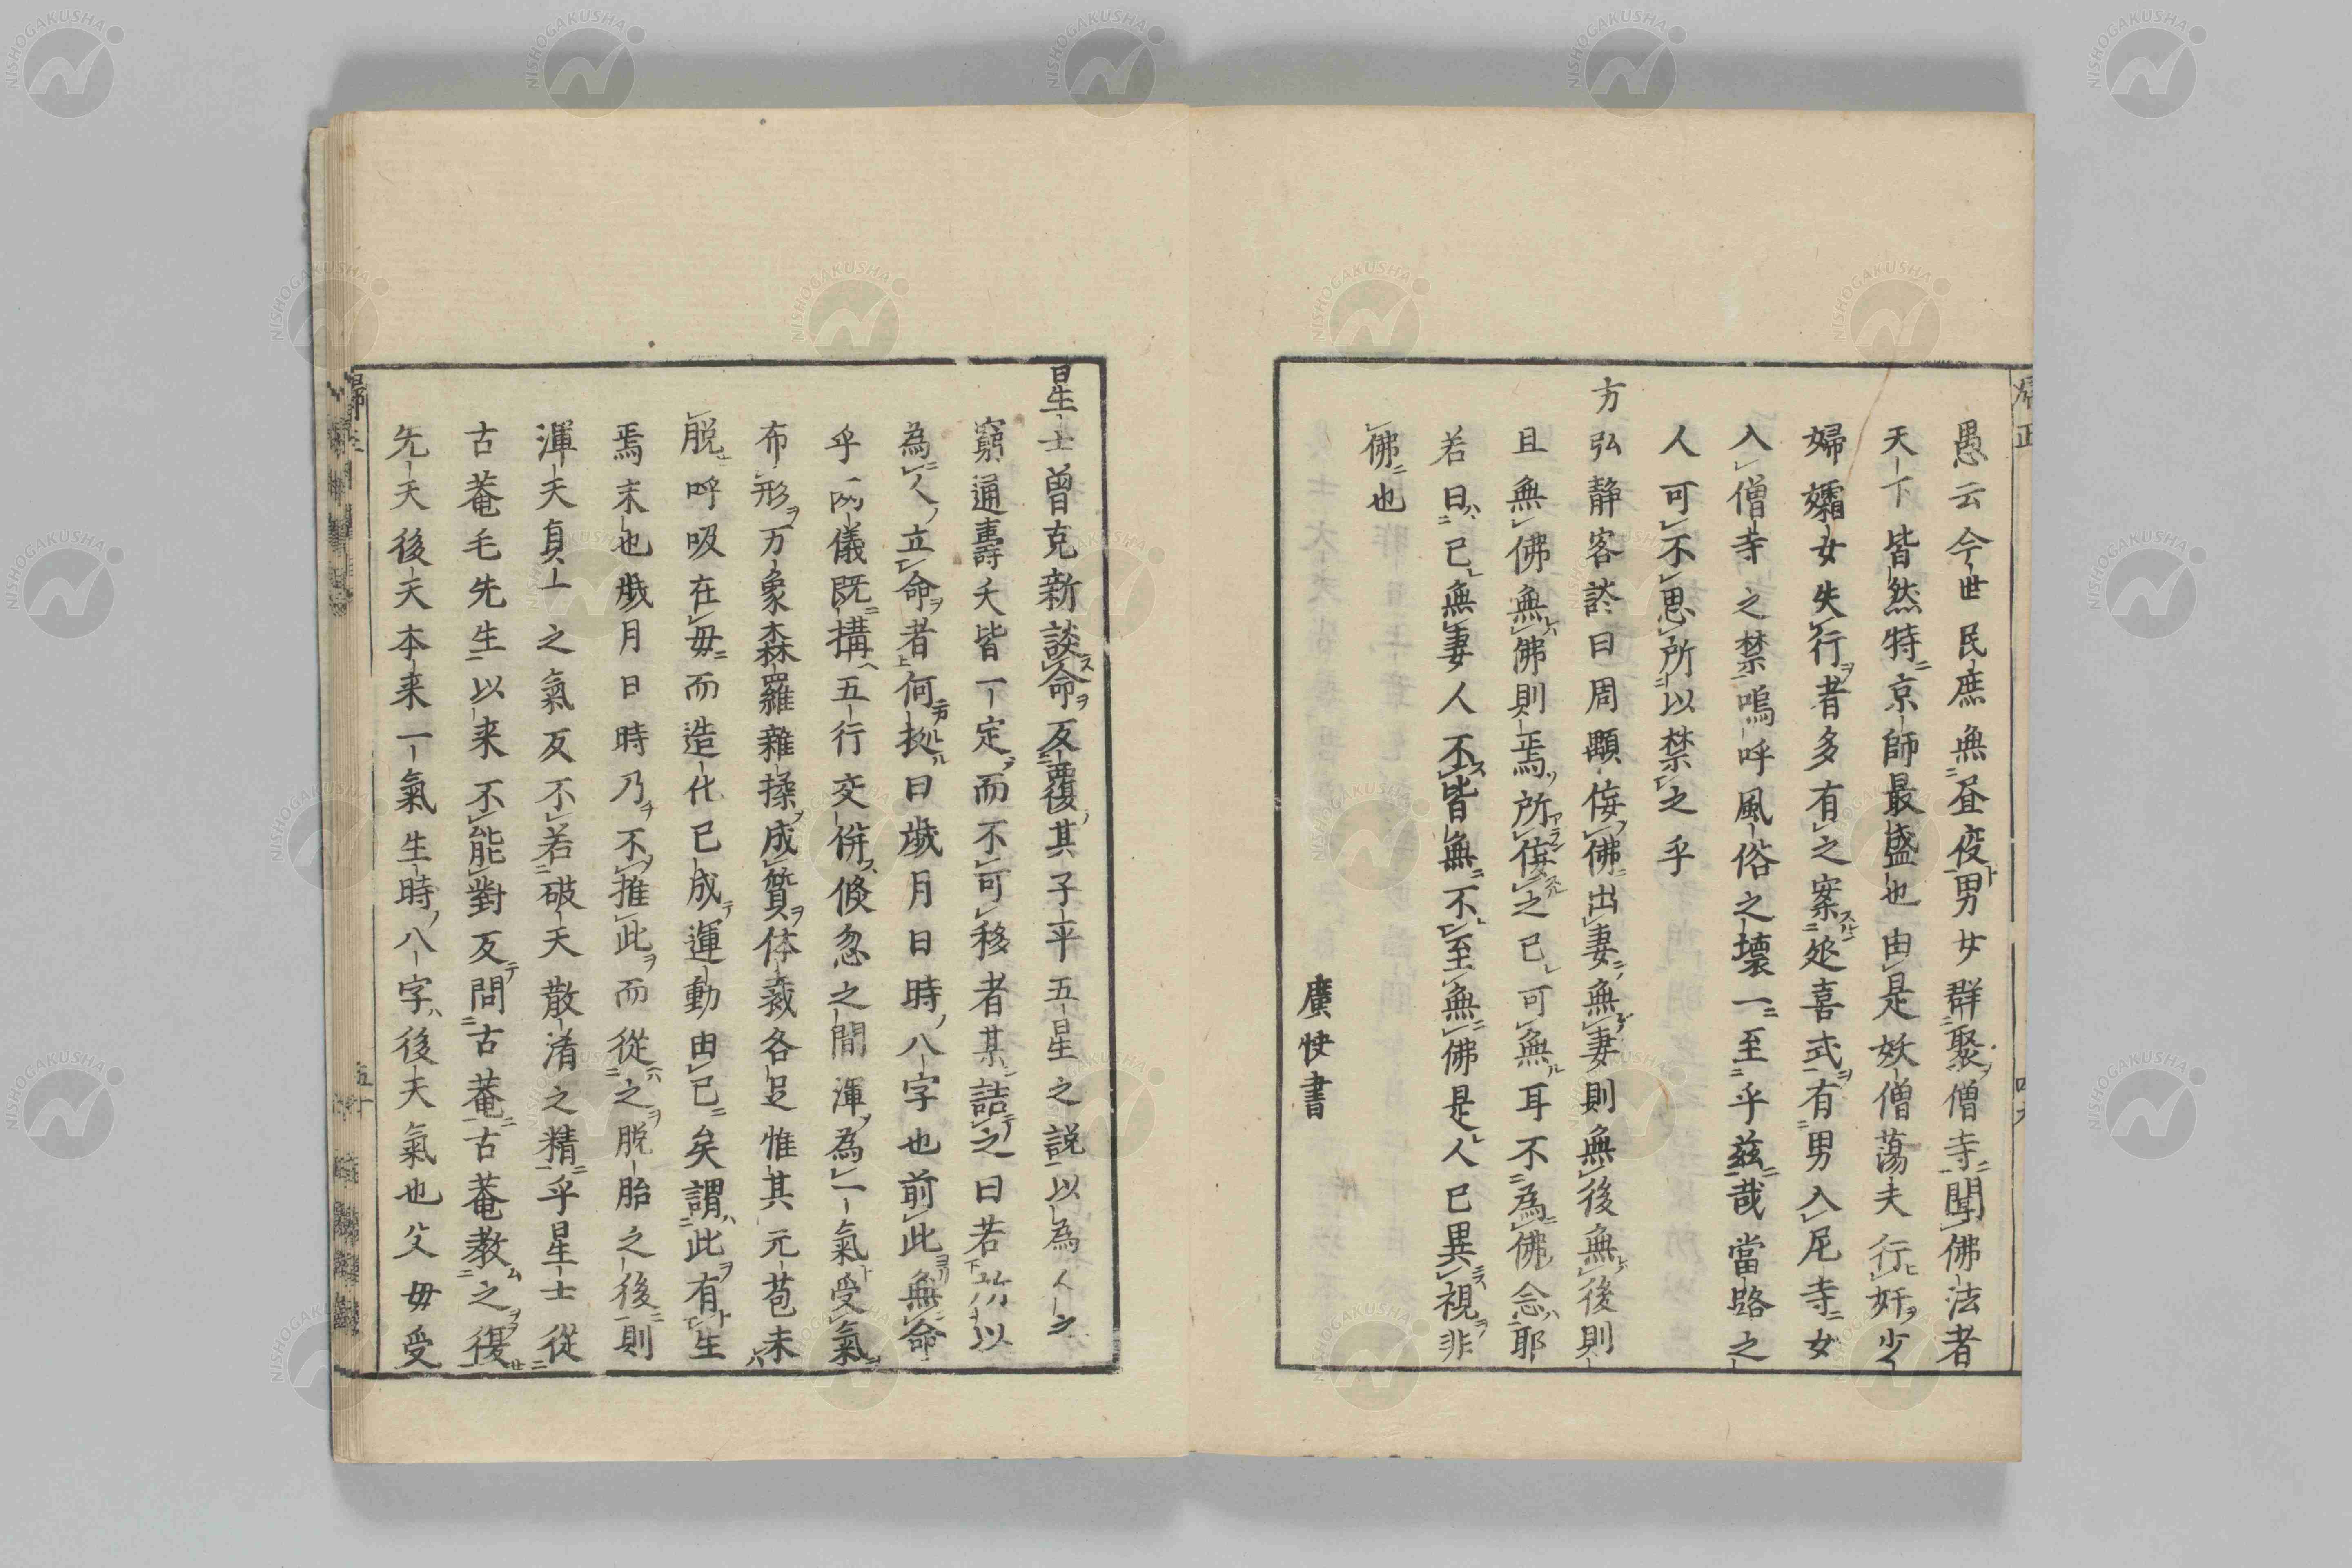 愚云今世民庶無昼夜男女群聚僧寺聞佛法者
天下皆然特京師最盛也由是妖僧蕩夫行奸少
婦孀女失行者多有之案処喜式有男入尼寺女
入僧寺之禁嗚呼風俗之壊一至乎兹哉當路之
人可不思所以禁之乎
方弘静客談曰周顒侫佛出妻無妻則無後無後則
且無佛無佛則焉所侫之已可無耳不為佛念耶
若曰已無妻人不皆無不至無佛是人已異視非
佛也
廣快書
星士曽克新談命反覆其子平五星之説以為人之
窮通壽夭皆一定而不可移者某詰之曰若所以
為人立命者何拠曰歳月日時八字也前此無命
乎両儀既搆五行交併倏忽之間渾為一氣受氣
布形万象森羅雜揉成質体裁各足惟其元苞未
脱呼吸在毋而造化已成運動由已矣謂此有生
焉末也歳月日時乃不推此而從之脱胎之後則
渾天真上之氣反不若破天散淆之精乎星士從
古菴毛先生以来不能對反問古菴古菴教之復
先天後天本来一氣生時八字後天氣也父毋受
歸正
五十